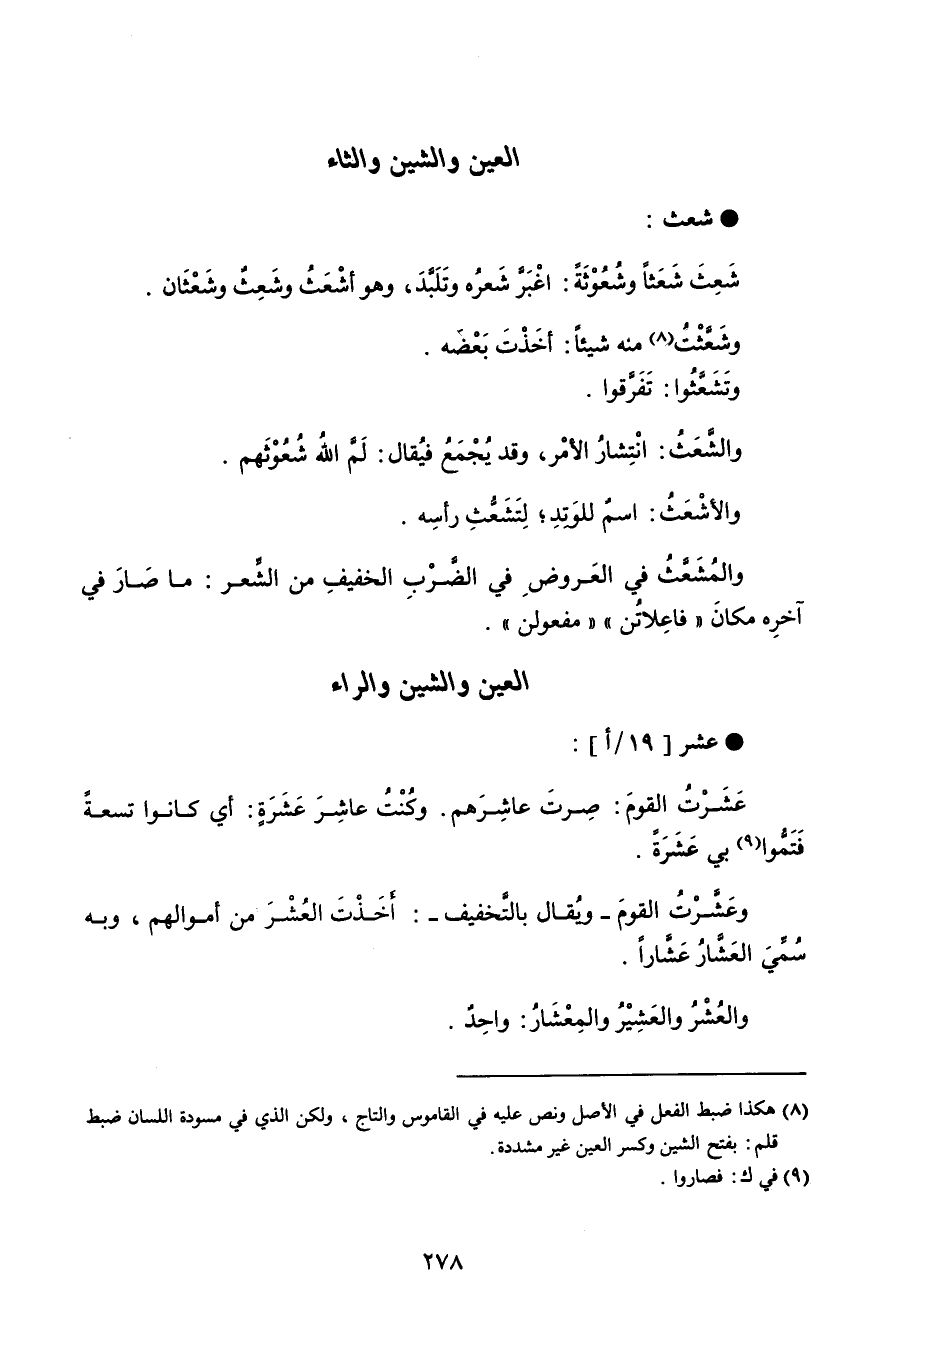 العين والشين والثاء
● شعث :
شَعِثَ شَعَثاً وشُعُوْثَةً: اغْبَرَّ شَعرُه وتَلَبَّدَ، وهو أشْعَثُ وشَعِثٌ وشَعْثَان .
وشَعَّثْتُ(٨) منه شيئاً: أخَذْتَ بَعْضَه .
وتَشَعَّثُوا: تَفَرَّقوا .
والشَّعَثُ: انْتِشارُ الأمْر، وقد يُجْمَعُ فيُقال: لَمَّ اللهُ شُعُوْثَهم .
والأشْعَثُ: اسمٌ للوَتِدِ؛ لِتَشَعُّثِ رأسِه .
والمُشَعَّثُ في العَروضِ في الضَّرْبِ الخفيفِ من الشِّعر : ما صَارَ في
آخرِه مكانَ « فاعِلاتُن » « مفعولن » .
العين والشين والراء
● عشر [ ١٩/أ ] :
عَشَرْتُ القومَ: صِرتَ عاشِرَهم. وكُنْتُ عاشِرَ عَشَرَةٍ: أي كانوا تسعةً
فَتَمُّوا(٩) بي عَشَرَةً .
وعَشَّرْتُ القومَ - ويُقال بالتَّخفيف - : أَخَذْتَ العُشْرَ من أموالهم ، وبه
سُمِّيَ العَشَّارُ عَشَّاراً .
والعُشْرُ والعَشِيْرُ والمِعْشَارُ: واحِدٌ .
(٨) هكذا ضبط الفعل في الأصل ونص عليه في القاموس والتاج ، ولكن الذي في مسودة اللسان ضبط
قلم: بفتح الشين وكسر العين غير مشددة.
(٩) في ك: فصاروا .
٢٧٨